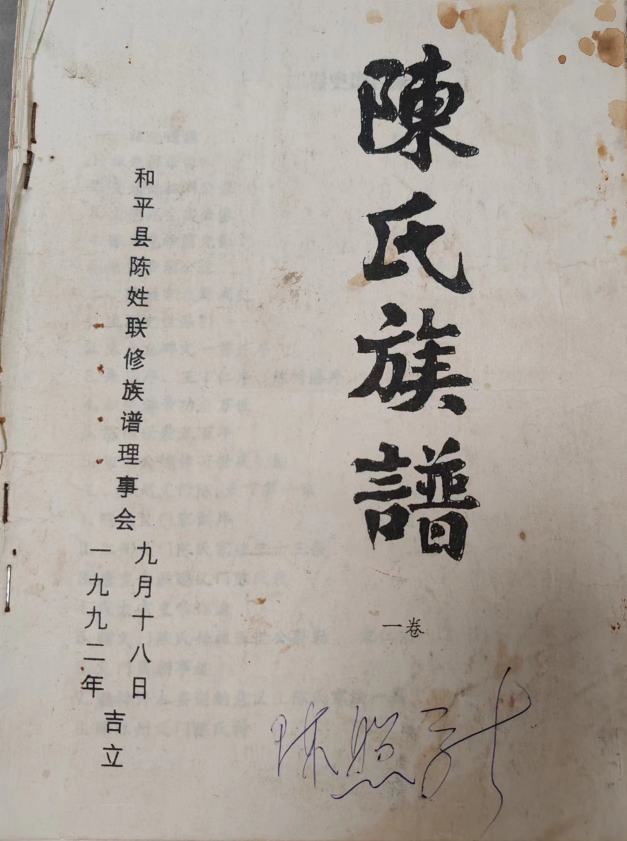 陳氏族譜
一卷
和平县陈姓联修族谱理事会
一九九二年
九月十八日
吉立
陈照新